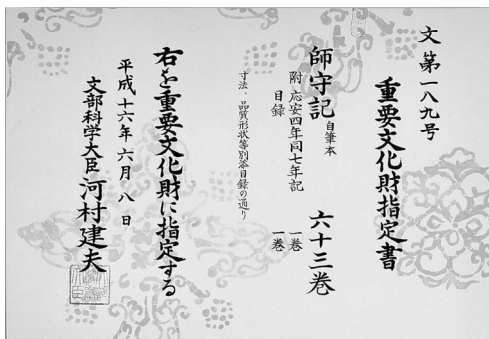 文第一八九号
重要文化財指定書
師守記 自筆本 六十三巻
附 応安四年同七年記 一巻
目録 一巻
寸法、品質形状等別添目録の通り
右を重要文化財に指定する
平成十六年六月八日
文部科学大臣 河村建夫